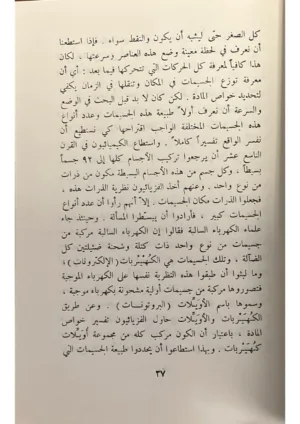 كل الصغر حتى ليشبه أن يكون والنقط سواء . فإذا استطعنا
أن نعرف في لحظة معينة وضع هذه العناصر وسرعتها ، لكان
هذا كافياً لمعرفة كل الحركات التي تتحركها فيما بعد : أي أن
معرفة توزع الجسيمات في المكان وتنقلها في الزمان يكفي
لتحديد خواص المادة . لكن كان لا بد قبل البحث في الوضع
والسرعة أن نعرف أولاً طبيعة هذه الجسيمات وعدد أنواع
هذه الجسيمات المختلفة الواجب اقتراحها كي نستطيع أن
نفسر الواقع تفسيراً كاملاً . واستطاع الكيميائيون في القرن
التاسع عشر أن يرجعوا تركيب الأجسام كلها إلى ٩٢ جسماً
بسيطاً ، وكل جسم من هذه الأجسام البسيطة مكون من ذرات
من نوع واحد . وعنهم أخذ الفزيائيون نظرية الذرات هذه ،
فجعلوا الذرات مكان الجسيمات . إلا أنهم رأوا أن عدد
الجسيمات كبير ، فأرادوا أن يبسّطوا المسألة . وحينئذ جاء
علماء الكهربائية فقالوا إن الكهربائية السالبة مركبة من
جسيمات من نوع واحد ذات كتلة وشحنة ضئيلتين كل
الضآلة ، وتلك الجسيمات هي الكُهَيْرِبات (الإلكترونات)؛
وما لبثوا أن طبقوا هذه النظرية نفسها على الكهرباء الموجبة
فتصوروها مركبة من جسيمات أولية مشحونة بكهرباء موجبة ،
وسموها باسم الأُوَيْلات (البروتونات) . وعن طريق
الكُهَيْرِبات والأُوَيْلات حاول الفزيائيون تفسير خواص
المادة ، باعتبار أن الكون مركب كله من مجموعة أُوَيْلات
كُهَيْرِبات . وبهذا استطاعوا أن يحددوا طبيعة الجسيمات التي
٣٧